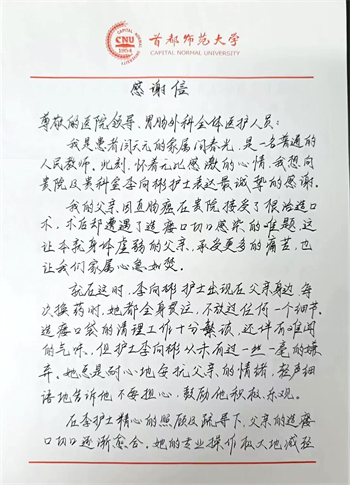 CAPITAL NORMAL UNIVERSITY
CNU
1954
首都师范大学
CAPITAL NORMAL UNIVERSITY
感谢信
尊敬的医院领导、胃肠外科全体医护人员:
我是患者闫天元的家属闫春光,是一名普通的
人民教师。此刻,怀着无比感激的心情,我想向
贵院及贵科室李向彬护士表达最诚挚的感谢。
我的父亲因直肠癌在贵院接受了根治造口
术,术后却遭遇了造瘘口切口感染的难题,这
让本就身体虚弱的父亲,承受更多的痛苦,也
让我们家属心急如焚。
就在这时,李向彬护士出现在父亲身边,每
次换药时,她都全身贯注,不放过任何一个细节。
造瘘口袋的清理工作十分繁琐,还伴有难闻
的气味,但护士李向彬从未有过一丝一毫的嫌
弃。她总是耐心地安抚父亲的情绪,轻声细
语地告诉他不要担心,鼓励他积极、乐观。
在李护士精心的照顾及疏导下,父亲的造瘘
口切口逐渐愈合。她的专业操作极大地减轻